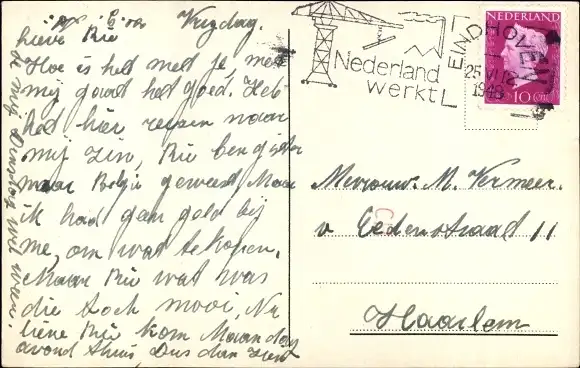 Vrijdag.
Lieve Rie
Hoe is het met je, met
mij gaat het goed. Heb
het hier reusen naar
mij zin, Rie ben gister
naar Belgie geweest, Maar
ik had geen geld bij
me, om wat te kopen.
Maar Rie wat was
die toch mooi, Nu
lieve Rie kom Maandag
avond thuis, Dus dan zien
je mij Dinsdag wel weer.
Nederland
werkt
EINDHOVEN
1948
NEDERLAND
10 CENT
Mevrouw. M. Vermeer.
v Eedenstraat 11
Haarlem